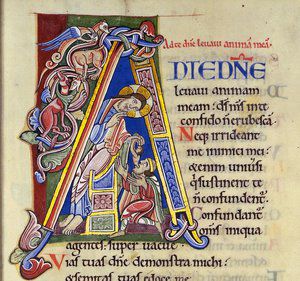 Ad te dñe levavi animã meã.
AD TE DÑE
levavi animam
meam: dſ mſ in te
confido n̄ erubeſcã.
Neq; irrideant
me inimici mei:
&enim univerſi
qui ſuſtinent te n̄
confundent̃.
Confundant̃
om̃ſ iniqua
agenteſ: ſuper vacue
Viaſ tuaſ dñe demonſtra michi:
&ſemitaſ tuaſ edoce me.